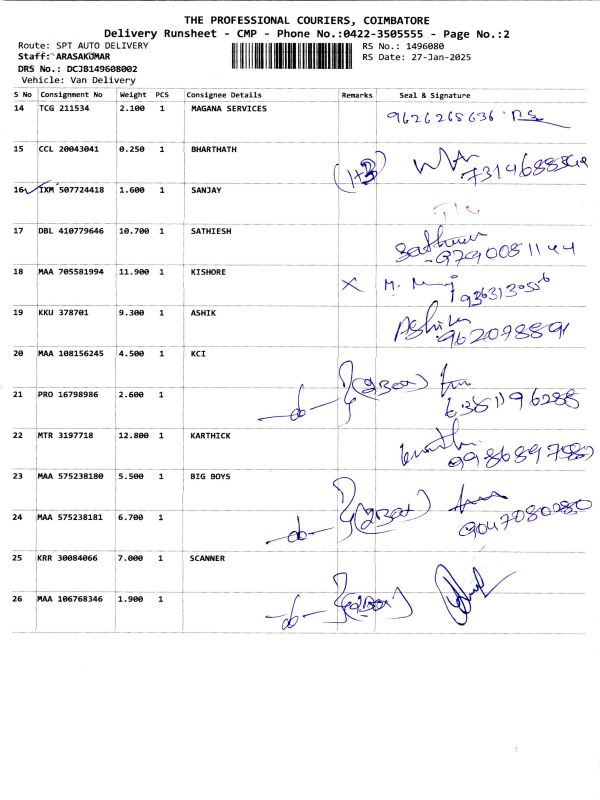 THE PROFESSIONAL COURIERS, COIMBATORE
Delivery Runsheet - CMP - Phone No.:0422-3505555 - Page No.:2
Route: SPT AUTO DELIVERY RS No.: 1496080
Staff: ARASAKUMAR RS Date: 27-Jan-2025
DRS No.: DCJB149608002
Vehicle: Van Delivery
S No Consignment No Weight PCS Consignee Details Remarks Seal & Signature
14 TCG 211534 2.100 1 MAGANA SERVICES 9626265636
15 CCL 20043041 0.250 1 BHARTHATH
16 IXM 507724418 1.600 1 SANJAY
17 DBL 410779646 10.700 1 SATHIESH Sathiesh
9790051144
18 MAA 705581994 11.900 1 KISHORE X
19 KKU 378701 9.300 1 ASHIK Ashik
962078891
20 MAA 108156245 4.500 1 KCI
-do- (2Box)
21 PRO 16798986 2.600 1 6381196288
22 MTR 3197718 12.800 1 KARTHICK
9986897589
23 MAA 575238180 5.500 1 BIG BOYS
-do- (2Box)
24 MAA 575238181 6.700 1 9047080280
25 KRR 30084066 7.000 1 SCANNER
26 MAA 106768346 1.900 1 -do- (2Box)